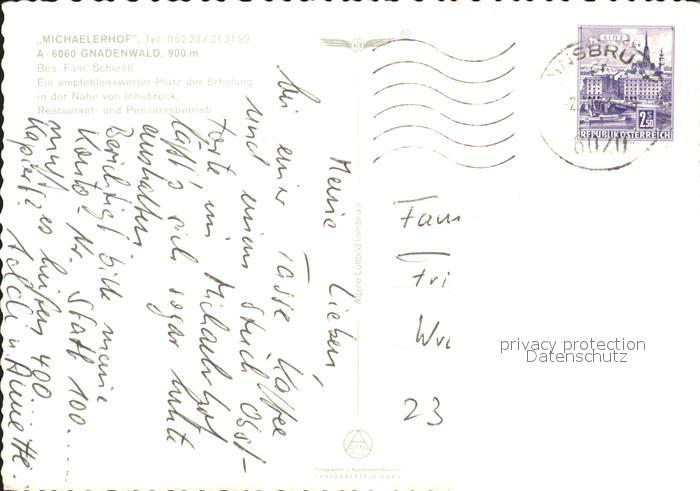 „MICHAELERHOF", Tel. 05223/213199
A-6060 GNADENWALD, 900 m
Bes. Fam. Schiestl
Ein empfehlenswerter Platz der Erholung
in der Nähe von Innsbruck.
Restaurant- und Pensionsbetrieb
Meine Lieben,
bei einer Tasse Kaffee
und einem Stück Obst-
torte im Michaelerhof
läßt's sich sogar heute
aushalten.
Berichtigt bitte meine
Konto-Nr. Statt 100...
muß es heißen 400.
Alpine Luftbild Innsbruck
LINZ
2 S 50
REPUBLIK ÖSTERREICH
INNSBRUCK
6020
Fam
Fri
23
privacy protection
Datenschutz